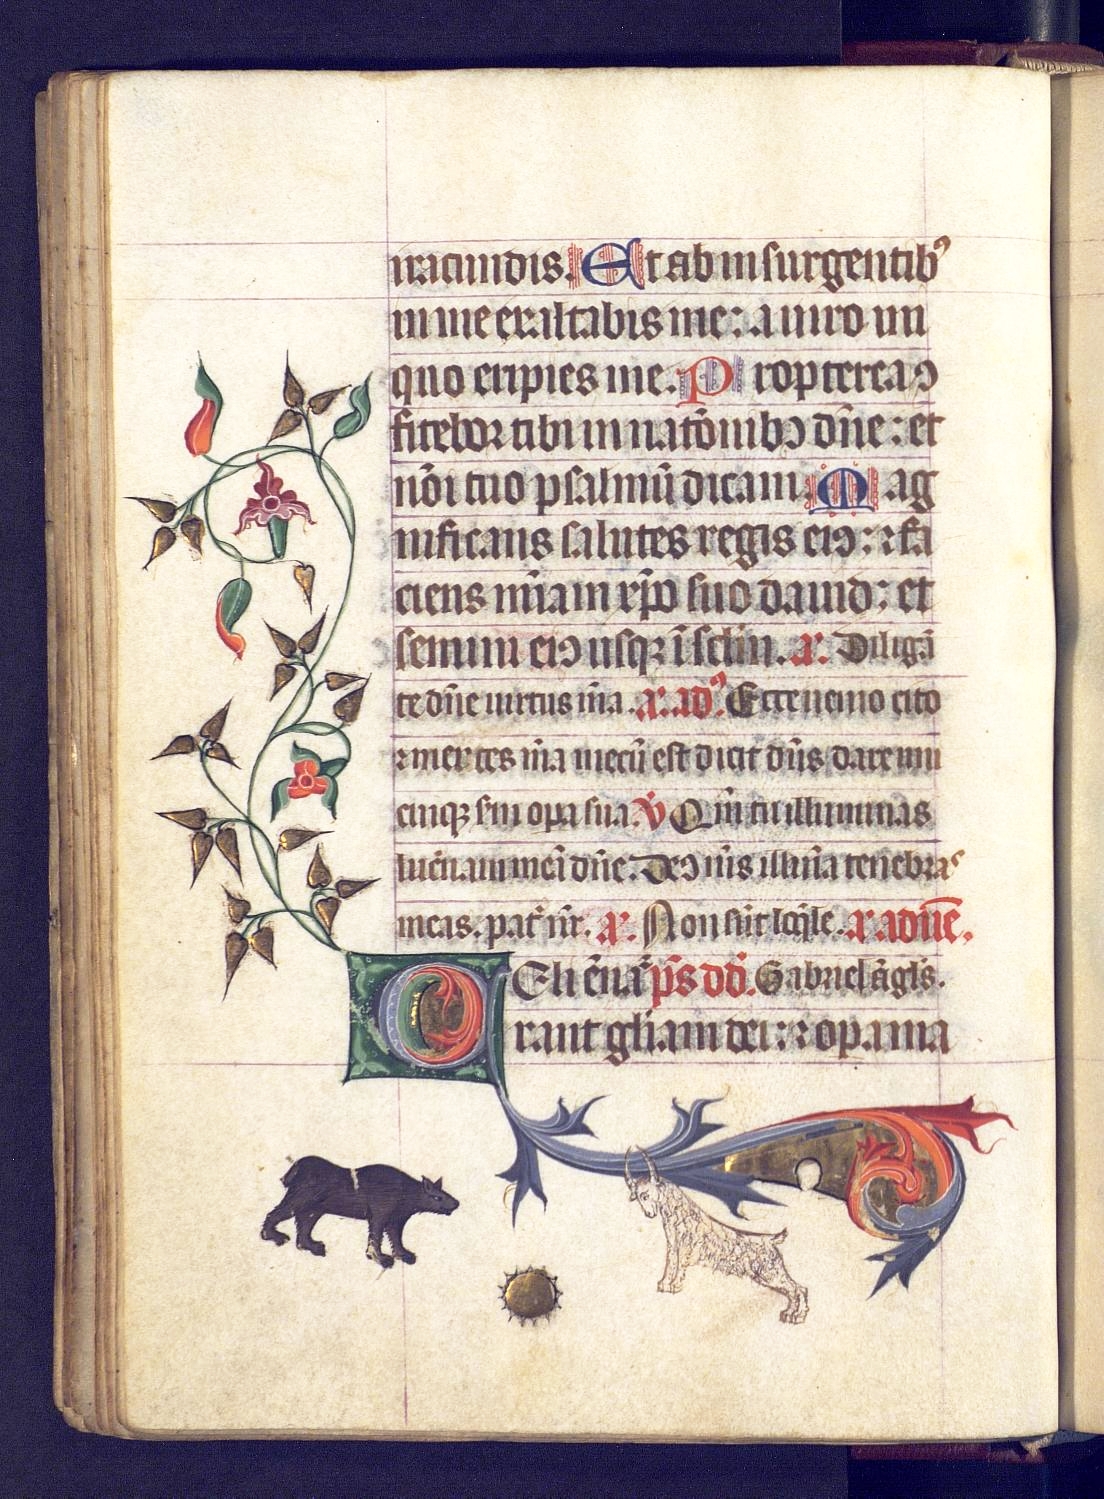 iracundis. Et ab insurgentib⁹
in me exaltabis me: a uiro ini
quo eripies me. Propterea ꝯ
fitebor tibi in natōnibꝯ dn̄e: et
nōi tuo psalmū dicam. Mag
nificans salutes regis eiꝯ: ⁊ fa
ciens mīam xp̄o suo dauid: et
semini eiꝯ usqꝫ ī sclm̄. a. Diligā
te dn̄e uirtus m̄a. a. ad⁹. Ecce uenio cito
⁊ merces m̄a mecū est dicit dn̄s dare uni
cuiqꝫ scm̄ opa sua. v̇ Qm̄ tu illuminas
lucernam meā dn̄e. Deꝯ m̄s illūīa tenebras
meas. pat̄ nr̄. a. Non sūt loq̄le. a. aduē.
Celi ēnar̄ ps̄ dd̄. Gabriel āgls̄.
rant gl̄iam dei: ⁊ opa ma